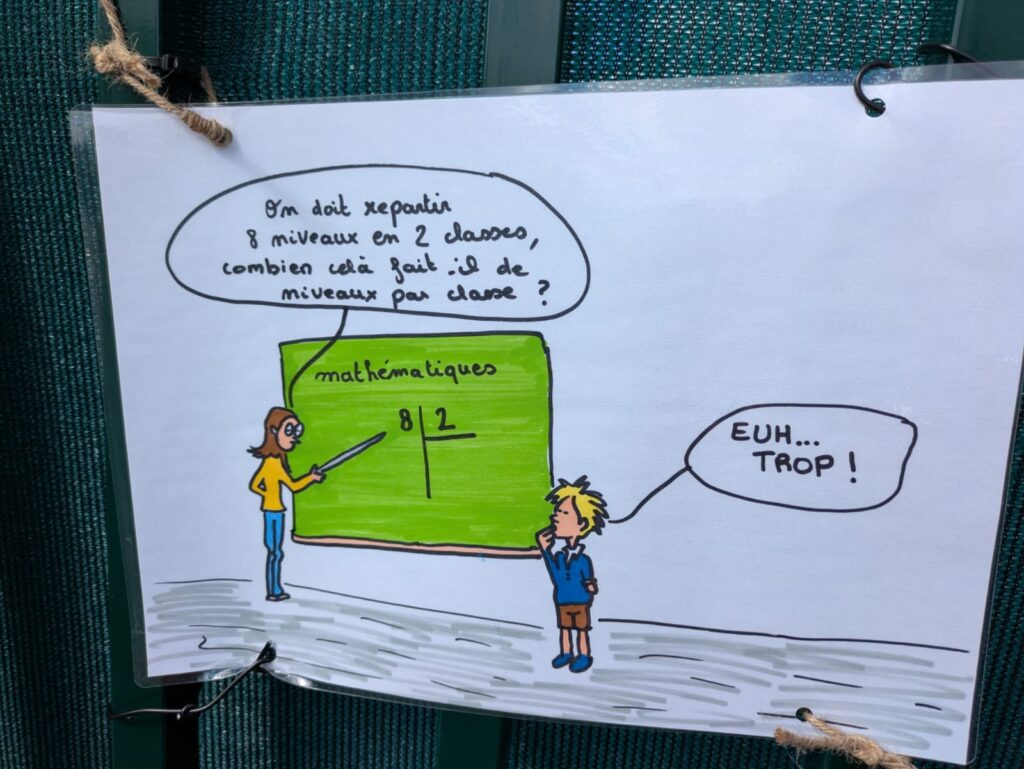 On doit repartir
8 niveaux en 2 classes,
combien celà fait-il de
niveaux par classe ?
mathématiques
8 2
EUH...
TROP !